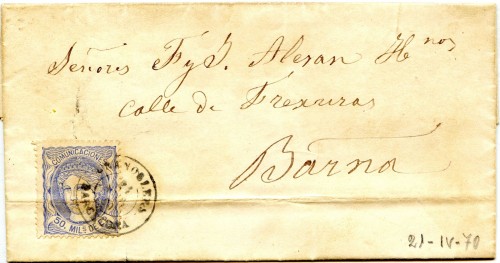 Señores F y J. Alesan Hnos
Calle de Frexuras
Barna
COMUNICACIONES
50. MILS DE
21-IV-70